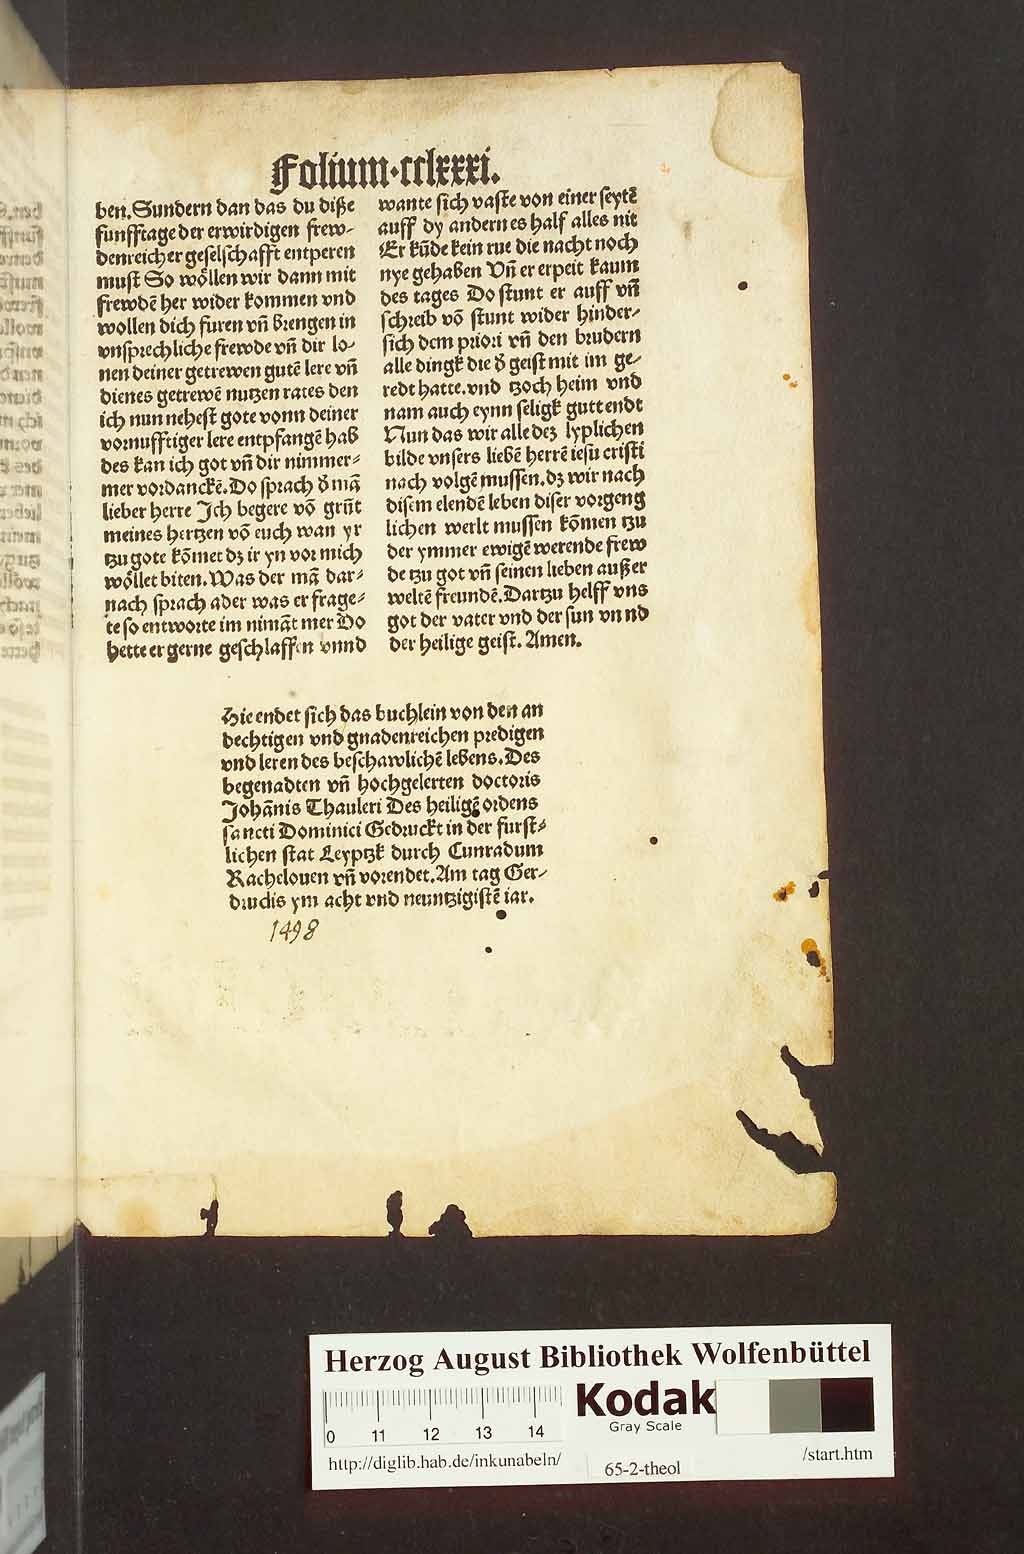 Folium·cclxxxi.
ben. Sundern dan das du diße
funfftage der erwirdigen frew-
denreicher geselschafft entperen
must So wöllen wir dann mit
frewdē her wider kommen vnd
wollen dich furen vn̄ brengen in
vnsprechliche frewde vn̄ dir lo-
nen deiner getrewen gutē lere vn̄
dienes getrewē nutzen rates den
ich nun nehest gote vonn deiner
vornufftiger lere entpfangē hab
des kan ich got vn̄ dir nimmer-
mer vordanckē. Do sprach d̕ mā
lieber herre Ich begere vō grūt
meines hertzen vō euch wan yr
tzu gote kōmet dz ir yn vor mich
wöllet biten. Was der mā dar-
nach sprach ader was er frage-
te so entworte im nimāt mer Do
hette er gerne geschlaffen vnnd
wante sich vaste von einer seytē
auff dy andern es half alles nit
Er kūde kein rue die nacht noch
nye gehaben Vn̄ er erpeit kaum
des tages Do stunt er auff vn̄
schreib vō stunt wider hinder-
sich dem priori vn̄ den brudern
alle dingk die d̕ geist mit im ge-
redt hatte. vnd tzoch heim vnd
nam auch eynn seligk gutt endt
Nun das wir alle dez lyplichen
bilde vnsers liebē herrē iesu cristi
nach volgē mussen. dz wir nach
disem elendē leben diser vorgeng
lichen werlt mussen kōmen tzu
der ymmer ewigē werende frew
de tzu got vn̄ seinen lieben außer
weltē freundē. Dartzu helff vns
got der vater vnd der sun vnnd
der heilige geist. Amen.
Hie endet sich das buchlein von den an
dechtigen vnd gnadenreichen predigen
vnd leren des beschawlichē lebens. Des
begenadten vn̄ hochgelerten doctoris
Johānis Thauleri Des heiligē ordens
sancti Dominici Gedruckt in der furst-
lichen stat Leyptzk durch Cunradum
Kachelouen vn̄ vorendet. Am tag Ger-
drudis ym acht vnd neuntzigistē iar.
1498
Herzog August Bibliothek Wolfenbüttel
0 11 12 13 14
Kodak
Gray Scale
http://diglib.hab.de/inkunabeln/
65-2-theol
/start.htm